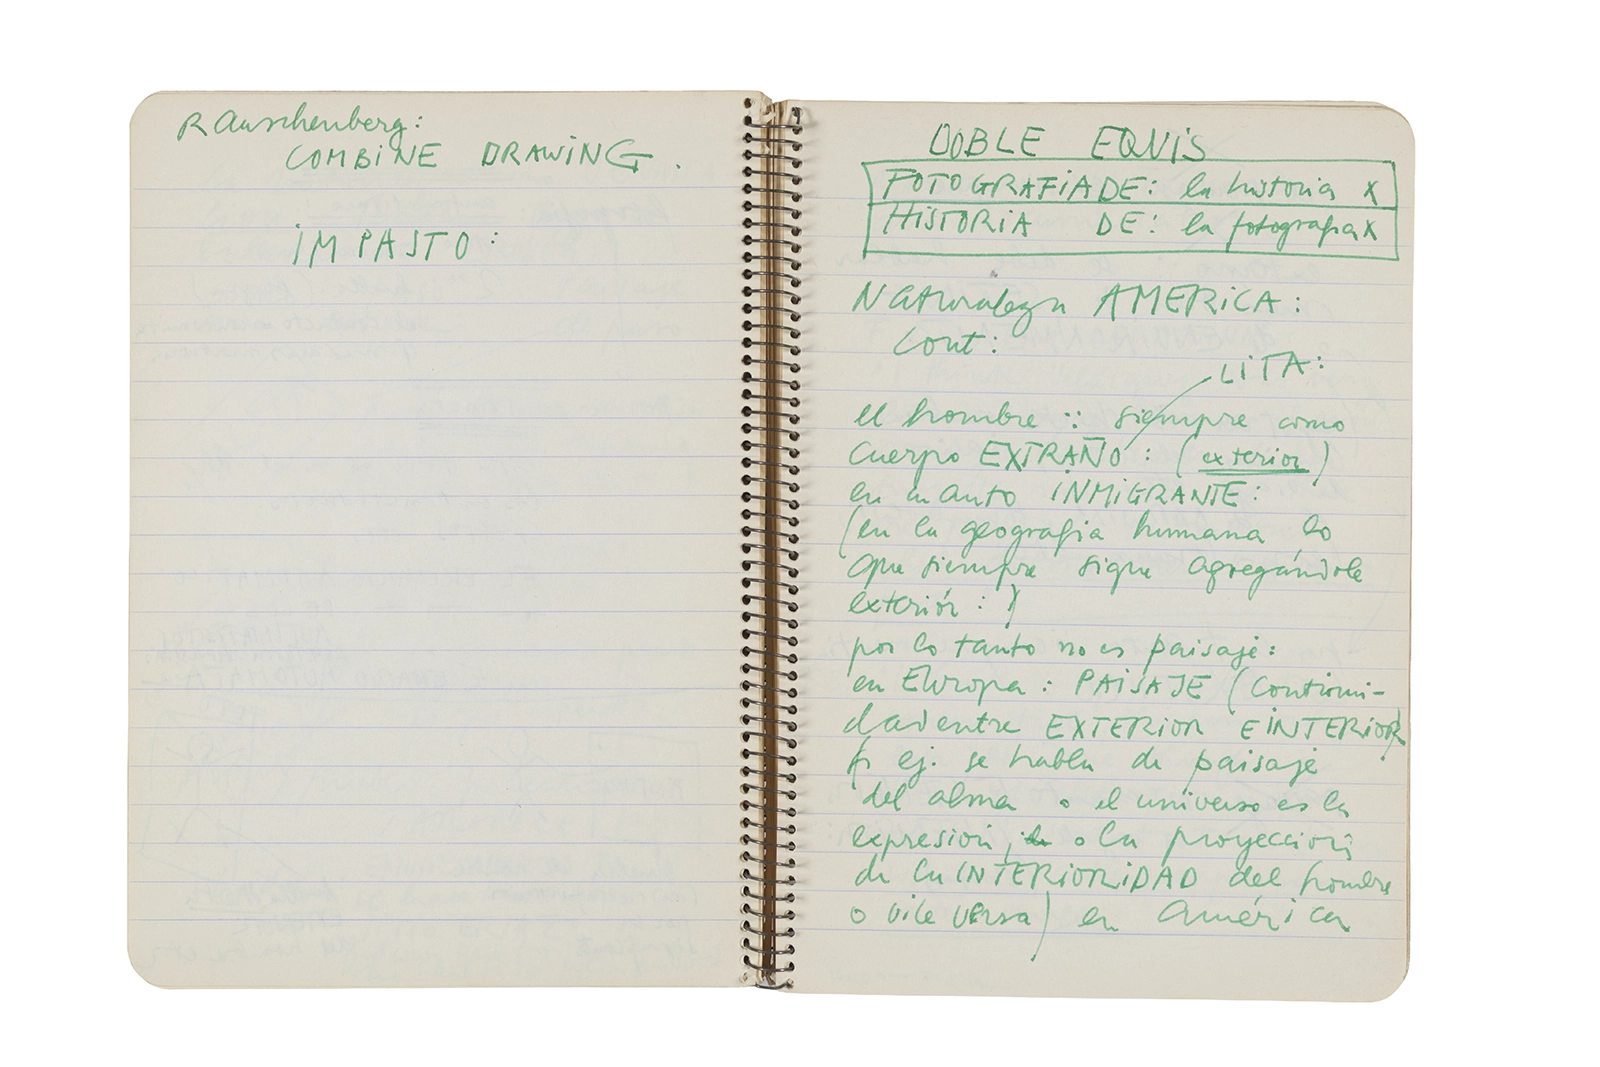 Rauschenberg:
COMBINE DRAWING.
IMPASTO:
DOBLE EQUIS
FOTOGRAFIA DE: la historia X
HISTORIA DE: la fotografia X
Naturaleza AMERICA:
Cont:
LITA:
el hombre :: siempre como
cuerpo EXTRAÑO : (exterior)
en cuanto INMIGRANTE:
(en la geografia humana lo
que siempre sigue agregándole
exteriór : )
por lo tanto no es paisaje:
en Europa : PAISAJE (continui-
dad entre EXTERIOR E INTERIOR)
p ej. se habla de paisaje
del alma o el universo es la
expresión, o la proyección
de la INTERIORIDAD del hombre
o vice versa) en América